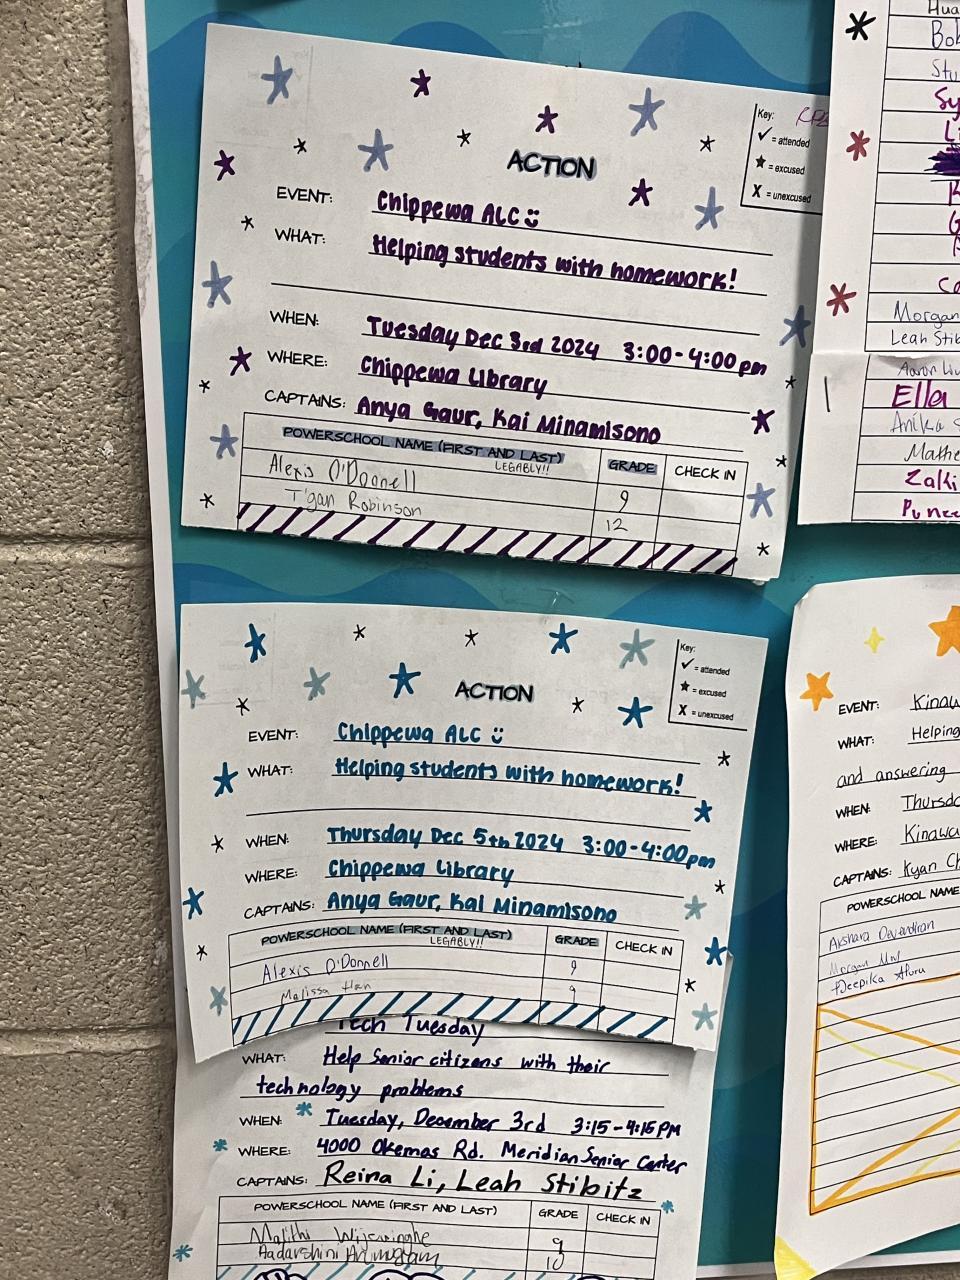 ACTION
Key:
✓ = attended
★ = excused
X = unexcused
EVENT: Chippewa ALC
WHAT: Helping students with homework!
WHEN: Tuesday Dec 3rd 2024 3:00-4:00pm
WHERE: Chippewa Library
CAPTAINS: Anya Gaur, Kai Minamisono
POWERSCHOOL NAME (FIRST AND LAST) GRADE CHECK IN
LEGABLY!!
Alexis O'Donnell 9
T'gan Robinson 12
ACTION
Key:
✓ = attended
★ = excused
X = unexcused
EVENT: Chippewa ALC
WHAT: Helping students with homework!
WHEN: Thursday Dec 5th 2024 3:00-4:00pm
WHERE: Chippewa Library
CAPTAINS: Anya Gaur, Kai Minamisono
POWERSCHOOL NAME (FIRST AND LAST) GRADE CHECK IN
LEGABLY!!
Alexis O'Donnell 9
Malissa Han 9
Tech Tuesday
WHAT: Help Senior citizens with their
technology problems
WHEN: Tuesday, December 3rd 3:15-4:15PM
WHERE: 4000 Okemos Rd. Meridian Senior Center
CAPTAINS: Reina Li, Leah Stibitz
POWERSCHOOL NAME (FIRST AND LAST) GRADE CHECK IN
Malithi Wijesinghe 9
Aadarshini Arumugam 10
Morgan
Leah Stib
Ella
Anika
Mathe
Zaki
EVENT: Kinaw
WHAT: Helping
and answering
WHEN: Thursda
WHERE: Kinawa
CAPTAINS: Kyan Ch
POWERSCHOOL NAME
Akshara Devendran
Morgan
Deepika Aluru